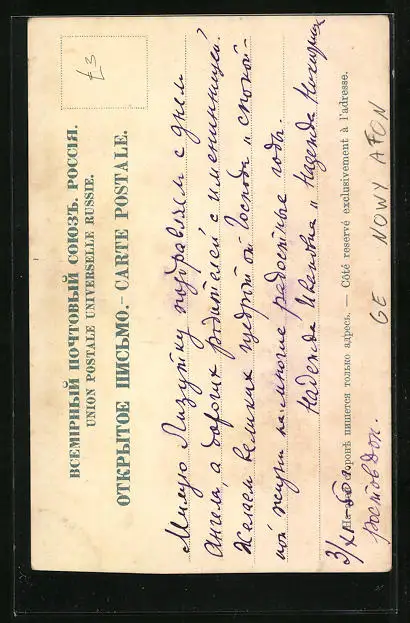 £3
ВСЕМІРНЫЙ ПОЧТОВЫЙ СОЮЗЪ. РОССІЯ.
UNION POSTALE UNIVERSELLE RUSSIE.
ОТКРЫТОЕ ПИСЬМО.-CARTE POSTALE.
Милую Лизутку поздравляем с днем
Ангела, а дорогих родителей с именинницей!
Желаем великих щедрот от Господа и спокой-
ной жизни на многие радостные годы.
Надежда и Надежда
На этой сторонѣ пишется только адресъ. — Côté reservé exclusivement à l'adresse.
3/XI
Ростов Дон.
GE NOWY AFON